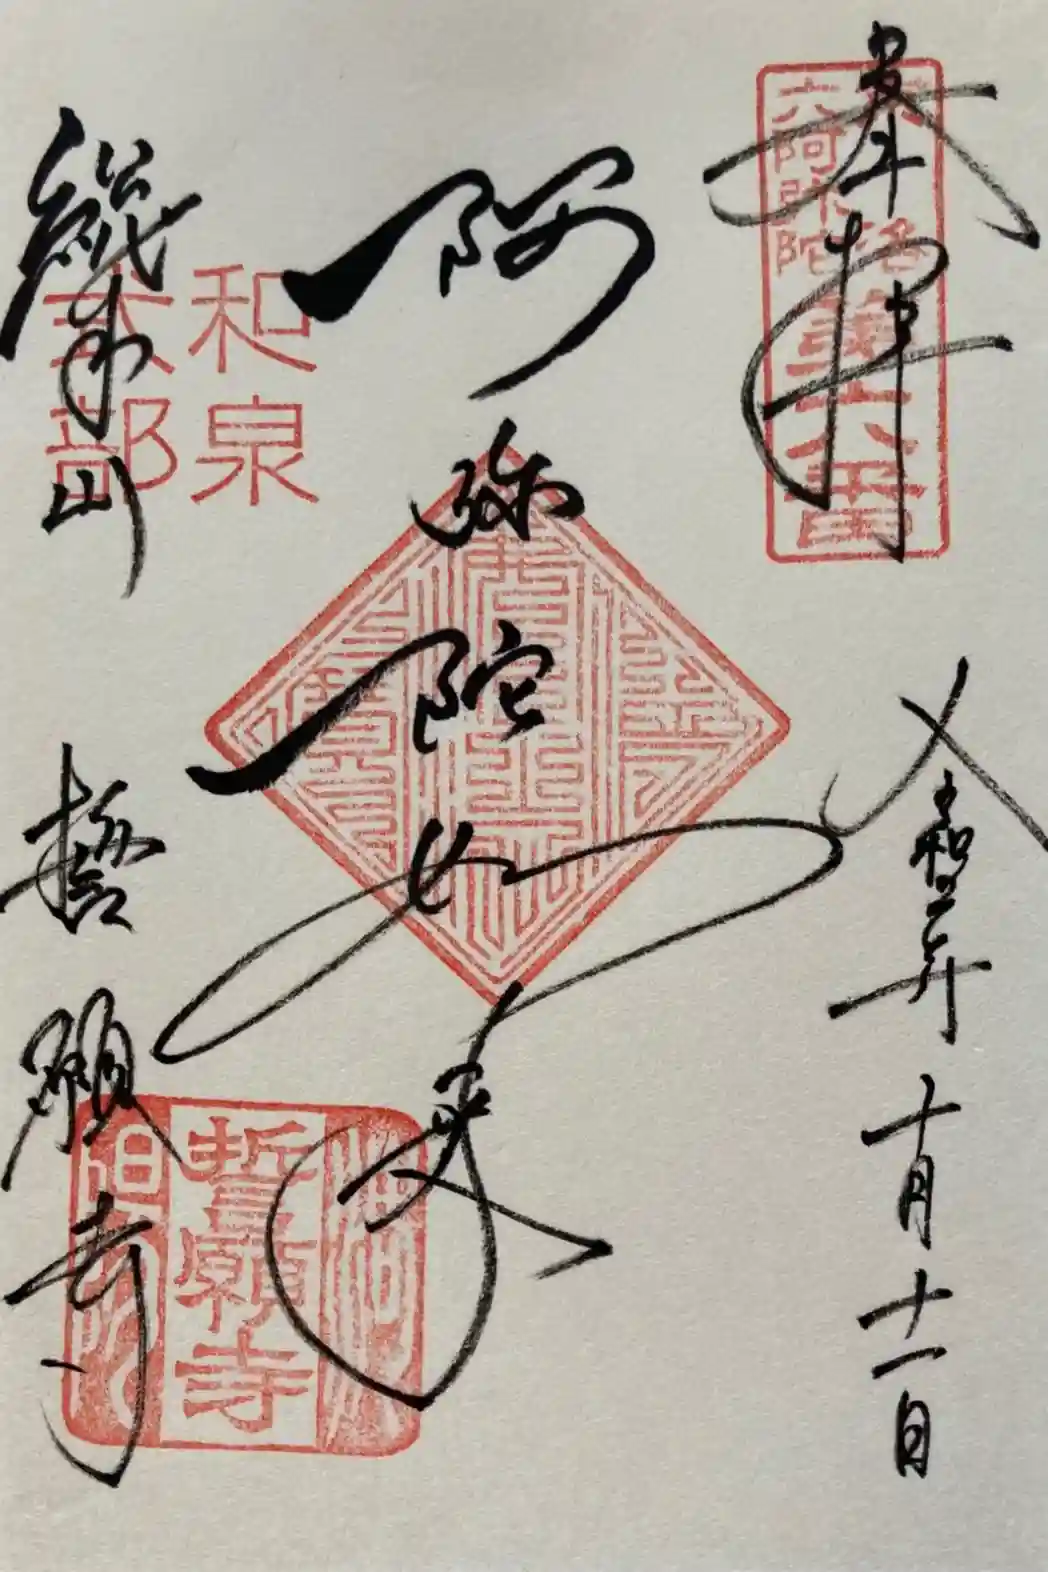 奉拝
令和二年
十月十一日
阿弥陀如来
総本山
誓願寺
六阿弥陀
和泉
式部
誓願寺